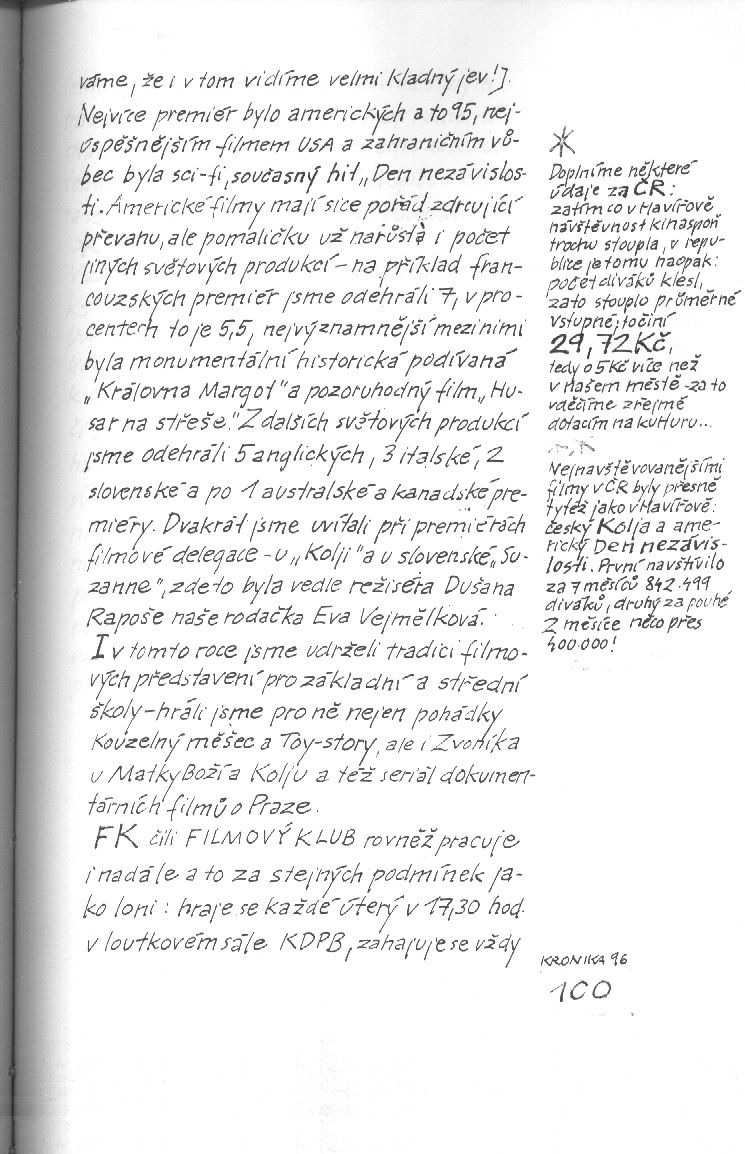 váme, že i v tom vidíme velmi kladný jev!].
Nejvíce premiér bylo amerických a to 95, nej-
úspěšnějším filmem USA a zahraničním vů-
bec byla sci-fi, současný hit „Den nezávislos-
ti. Americké filmy mají sice pořád zdrcující
převahu, ale pomaličku už narůstá i počet
jiných světových produkcí – na příklad fran-
couzských premiér jsme odehráli 7, v pro-
centech to je 5,5, nejvýznamnější mezi nimi
byla monumentální historická podívaná
„Královna Margot" a pozoruhodný film „Hu-
sar na střeše." Z dalších světových produkcí
jsme odehráli 5 anglických, 3 italské, 2
slovenské a po 1 australské a kanadské pre-
miéry. Dvakrát jsme uvítali při premiérách
filmové delegace – u „Kolji" a u slovenské „Su-
zanne", zde to byla vedle režiséra Dušana
Rapoše naše rodačka Eva Vejmělková.
I v tomto roce jsme udrželi tradici filmo-
vých představení pro základní a střední
školy – hráli jsme pro ně nejen pohádky
Kouzelný měšec a Toy-story, ale i Zvoníka
u Matky Boží a Kolju a též seriál dokumen-
tárních filmů o Praze.
FK čili FILMOVÝ KLUB rovněž pracuje
i nadále a to za stejných podmínek ja-
ko loni : hraje se každé úterý v 17,30 hod.
v loutkovém sále KDPB, zahajuje se vždy
*
Doplníme některé
údaje za ČR:
zatím co v Havířově
návštěvnost kin aspoň
trochu stoupla, v repu-
blice je tomu naopak:
počet diváků klesl,
zato stouplo průměrné
vstupné; to činí
29,72 Kč,
tedy o 5 Kč více než
v našem městě – za to
vděčíme zřejmě
dotacím na kulturu...
Nejnavštěvovanějšími
filmy v ČR byly přesně
tytéž jako v Havířově:
český Kolja a ame-
rický Den nezávis-
losti. První navštívilo
za 7 měsíců 842.499
diváků, druhý za pouhé
2 měsíce něco přes
400.000!
KRONIKA 96
100